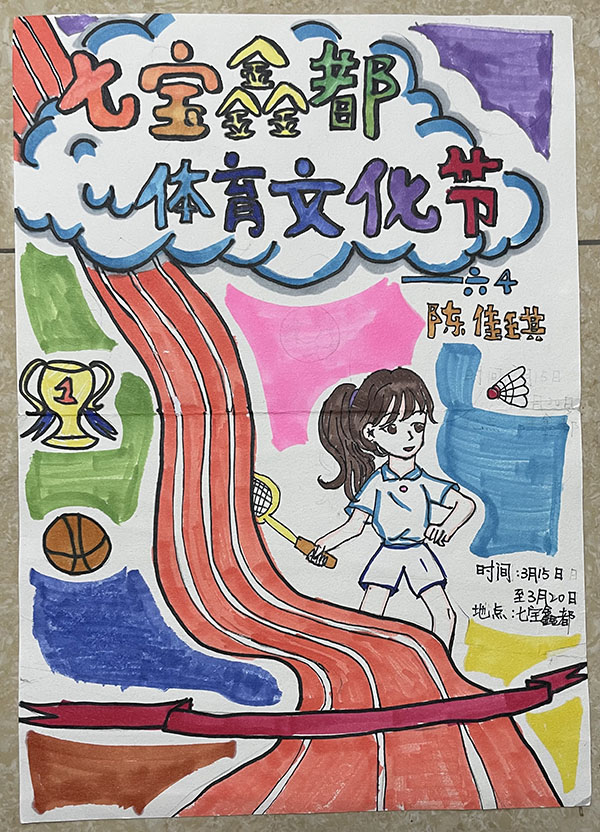 七宝鑫都
体育文化节
——六4
陈佳琪
1
时间:3月15日
至3月20日
地点:七宝鑫都